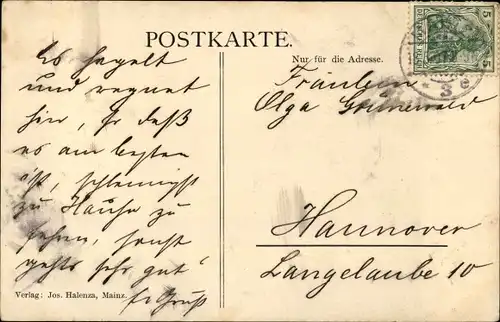 POSTKARTE.
Nur für die Adresse.
Es hagelt
und regnet
hier, so daß
es am besten
ist, schleunigst
zu Hause zu
gehen, sonst
gehts sehr gut
Gruß
Fräulein
Olga Grünewald
Hannover
Langelaube 10
Verlag: Jos. Halenza, Mainz.
5
5
3